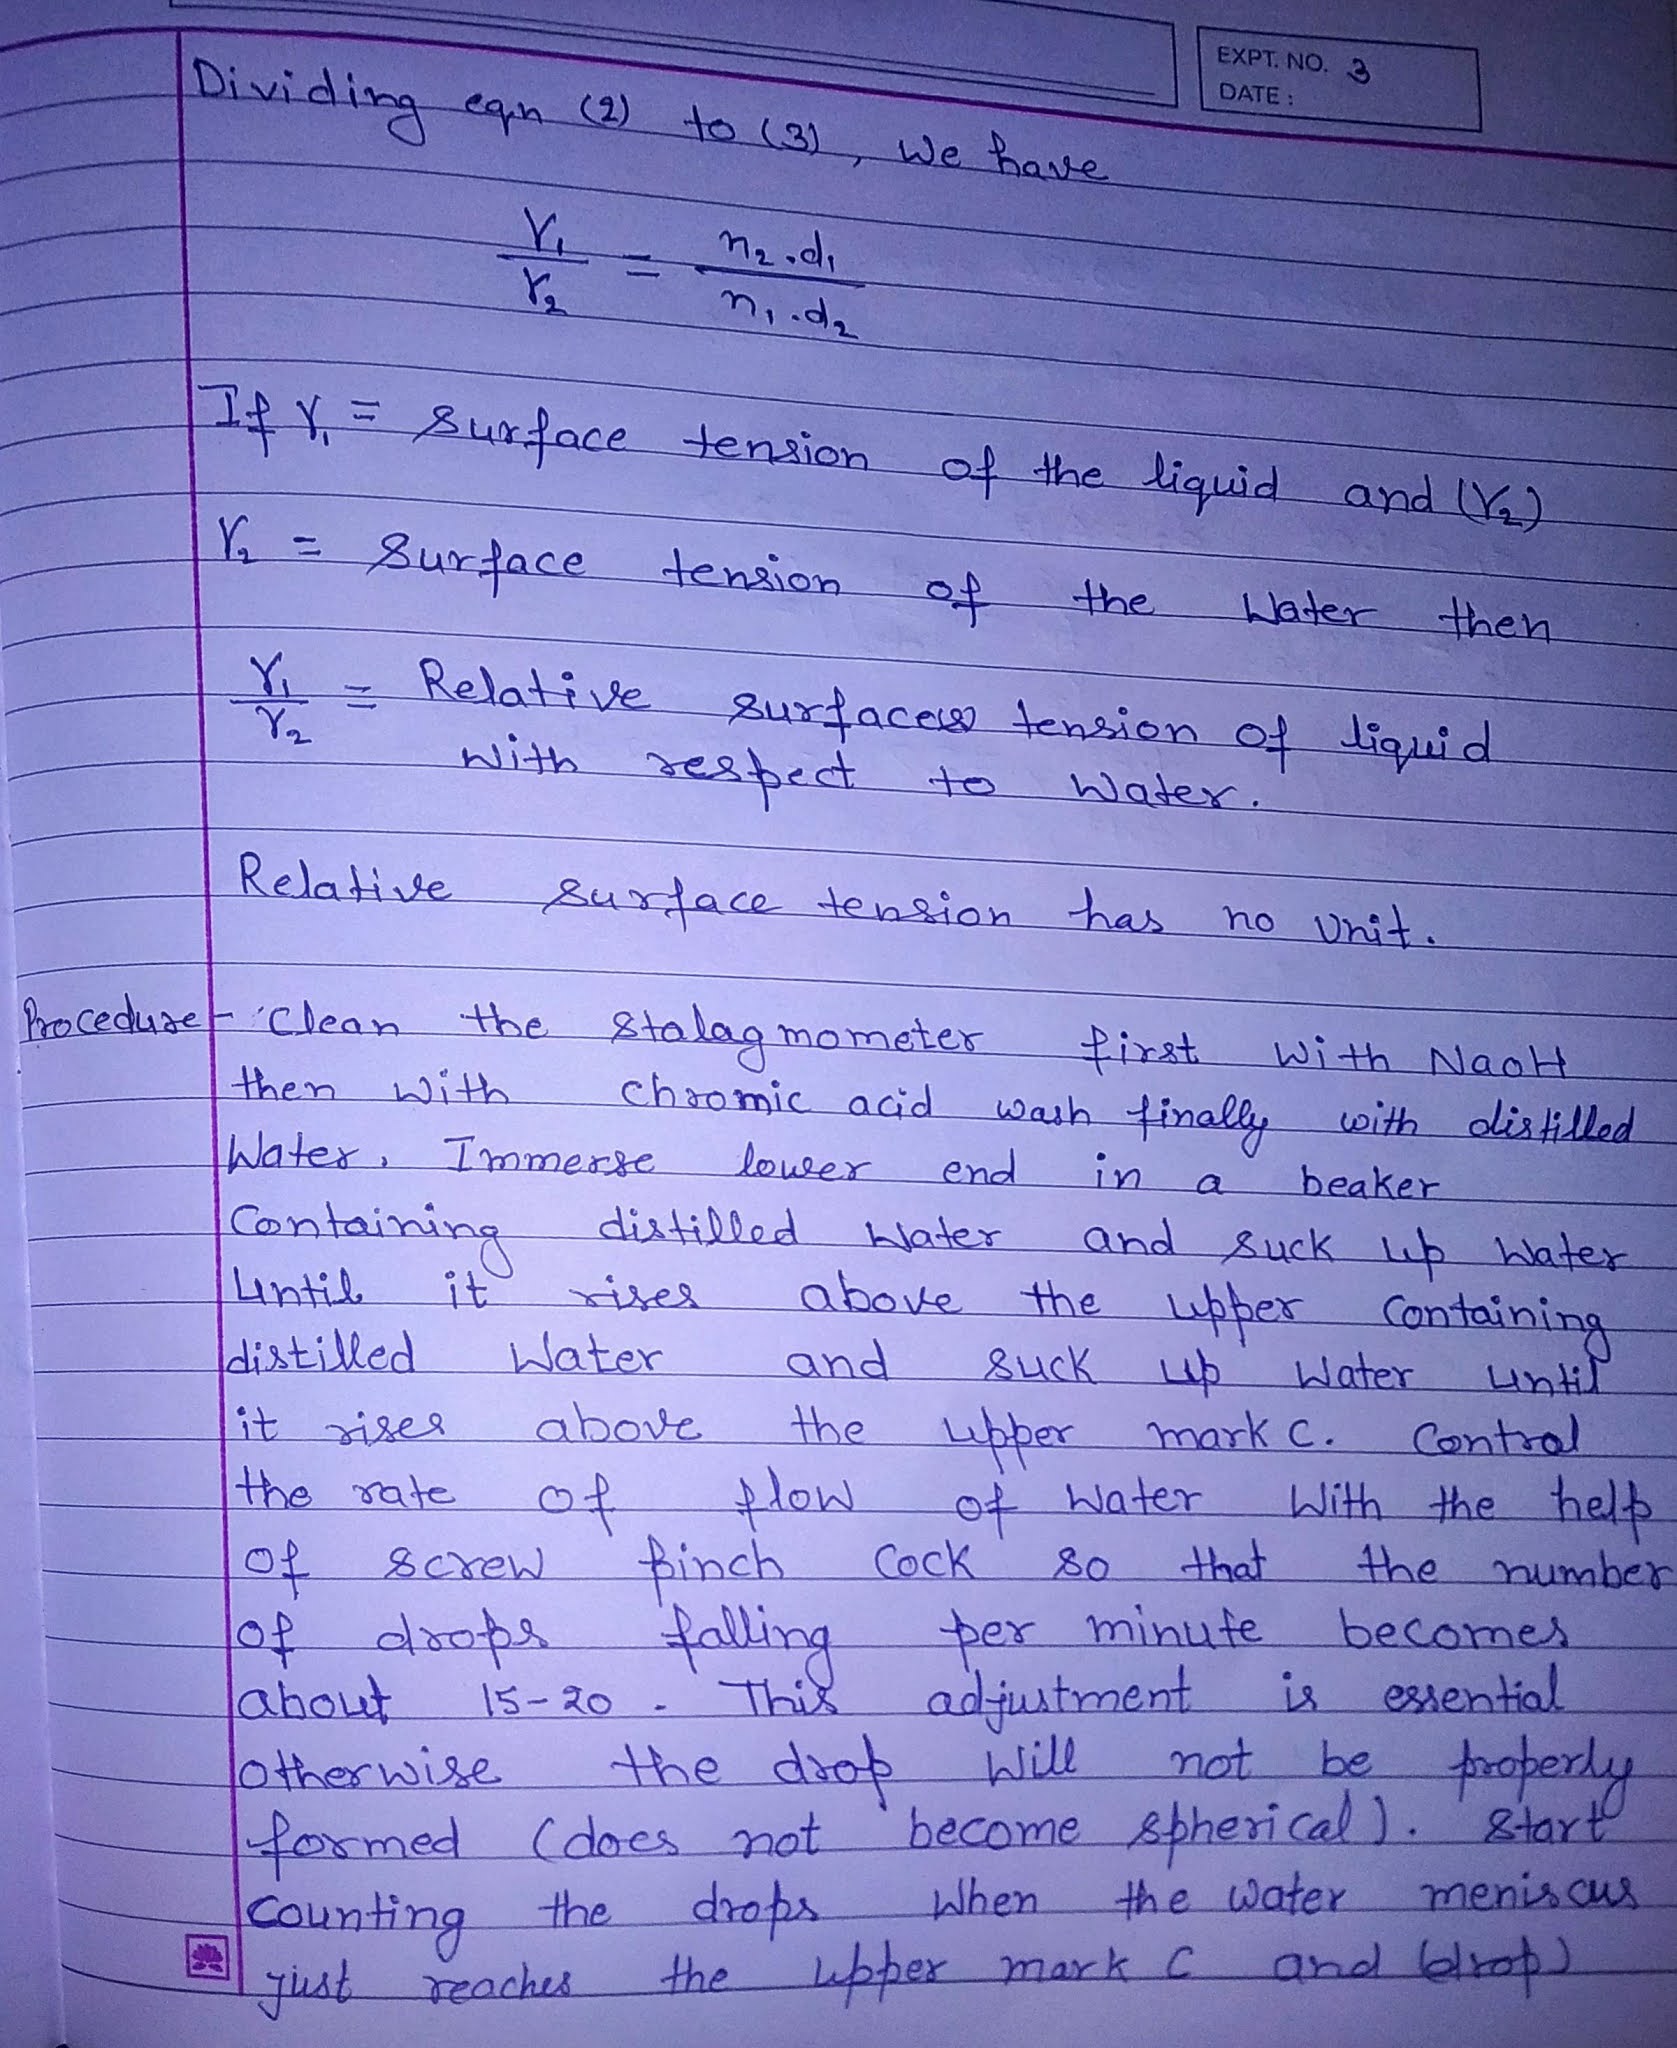 EXPT. NO. 3
DATE :
Dividing eqn (2) to (3), we have
γ₁/γ₂ = n₂.d₁/n₁.d₂
If γ₁ = surface tension of the liquid and (γ₂)
γ₂ = surface tension of the Water then
γ₁/γ₂ = Relative surface tension of liquid
with respect to water.
Relative surface tension has no unit.
Procedure - Clean the stalagmometer first with NaoH
then with chromic acid wash finally with distilled
Water. Immerse lower end in a beaker
Containing distilled water and suck up water
Until it rises above the upper Containing
distilled Water and suck up Water until
it rises above the upper mark C. Control
the rate of flow of Water With the help
of screw pinch Cock so that the number
of drops falling per minute becomes
about 15-20. This adjustment is essential
otherwise the drop Will not be properly
formed (does not become spherical). Start
Counting the drops When the water meniscus
just reaches the upper mark C and (drop)